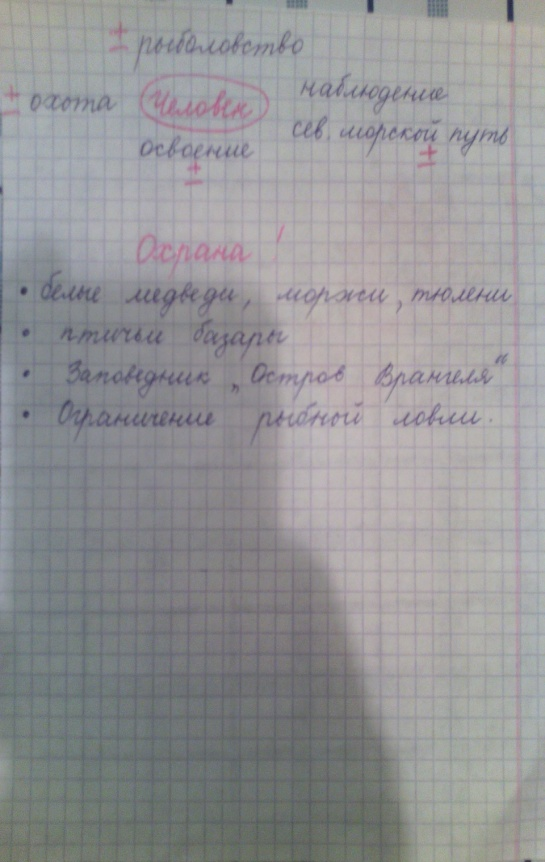 ± рыболовство
± охота Человек наблюдение
освоение сев. морской путь
± ±
Охрана!
• белые медведи, моржи, тюлени
• птичьи базары
• Заповедник „Остров Врангеля"
• Ограничение рыбной ловли.